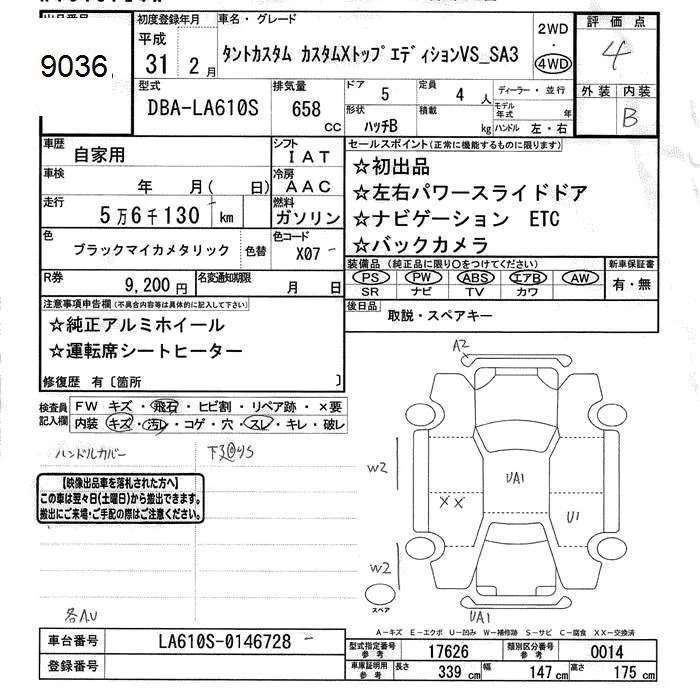 初度登録年月 車名・グレード 2WD 評価点
平成 ・ 4
31 2月 タントカスタム カスタムXトップエディションVS_SA3 4WD
9036
型式 排気量 ドア 5 定員 4人 ディーラー・並行 外装 内装
DBA-LA610S 658 CC 形状 ハッチB 積載 kg モデル年式 年 B
ハンドル 左・右
車歴 自家用 シフト IAT セールスポイント(正常に機能するものに限ります)
車検 年 月( 日) 冷房 AAC ☆初出品
走行 5万6千130 km 燃料 ガソリン ☆左右パワースライドドア
☆ナビゲーション ETC
色 ブラックマイカメタリック 色替 色コード X07 ☆バックカメラ
装備品(純正品に限り○をつけてください) 新車保証書
R券 9,200円 名変通知期限 月 日 PS PW ABS エアB AW 有・無
SR ナビ TV カワ
注意事項申告欄(不具合内容等は具体的に記入して下さい) 後日品 取説・スペアキー
☆純正アルミホイール
☆運転席シートヒーター
修復歴 有〔箇所 〕
検査員記入欄 FW キズ・飛石・ヒビ割・リペア跡・×要
内装 キズ・汚レ・コゲ・穴・スレ・キレ・破レ
ハンドルカバー
【映像出品車を落札された方へ】
この車は翌々日(土曜日)から搬出できます。
搬出にご来場・ご手配の際はご注意ください。
各AU
A2
W2
UA1
XX
U1
W2
スペア
UA1
A-キズ E-エクボ U-凹み W-補修跡 S-サビ C-腐食 XX-交換済
車台番号 LA610S-0146728
登録番号
型式指定番号 参考 17626 類別区分番号 参考 0014
車庫証明用 参考 長さ 339 cm 幅 147 cm 高さ 175 cm